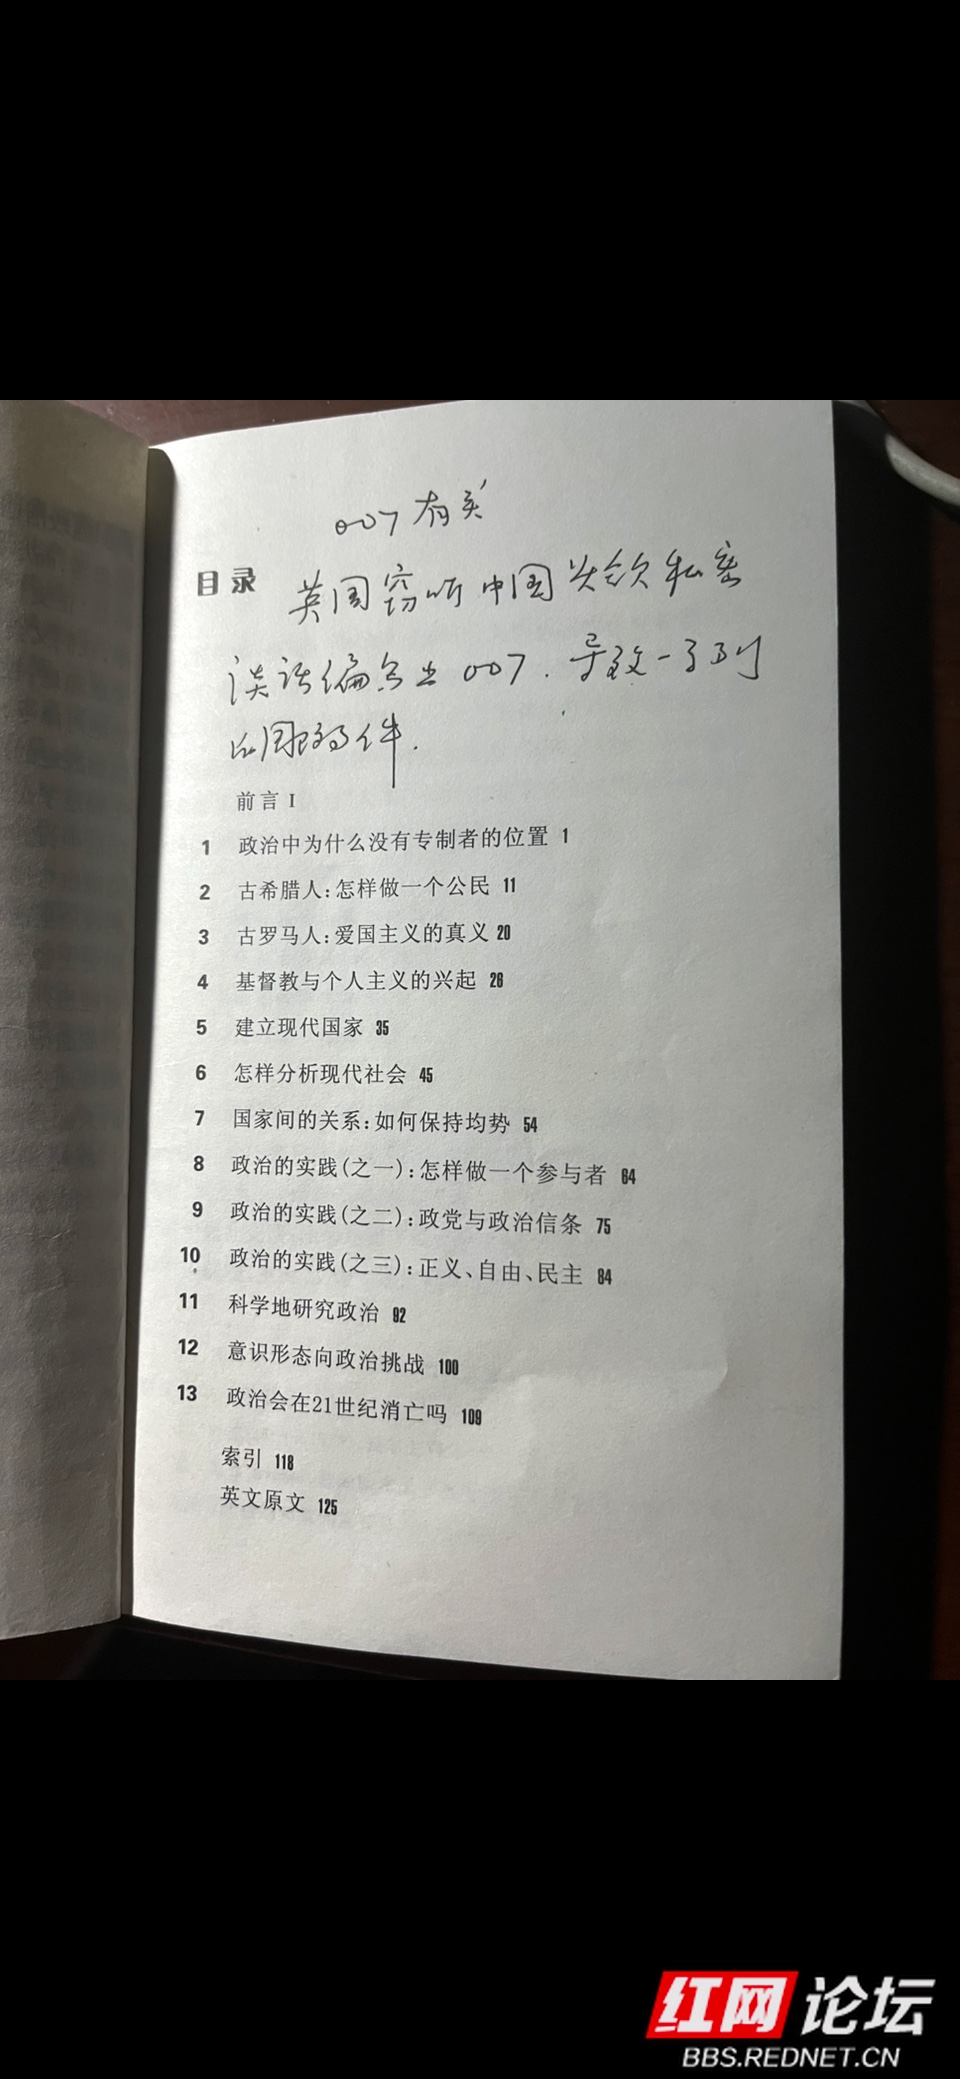 007有关
目录
英国窃听中国 私密
谈话编 出007.导致一系列
件.
前言 I
1 政治中为什么没有专制者的位置 1
2 古希腊人:怎样做一个公民 11
3 古罗马人:爱国主义的真义 20
4 基督教与个人主义的兴起 26
5 建立现代国家 35
6 怎样分析现代社会 45
7 国家间的关系:如何保持均势 54
8 政治的实践(之一):怎样做一个参与者 64
9 政治的实践(之二):政党与政治信条 75
10 政治的实践(之三):正义、自由、民主 84
11 科学地研究政治 92
12 意识形态向政治挑战 100
13 政治会在21世纪消亡吗 109
索引 118
英文原文 125
红网论坛
BBS.REDNET.CN